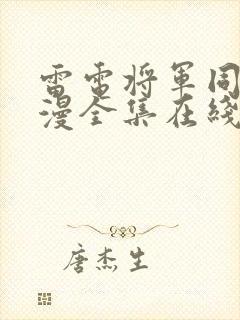 雷電将軍同
漫全集在綫
唐杰生